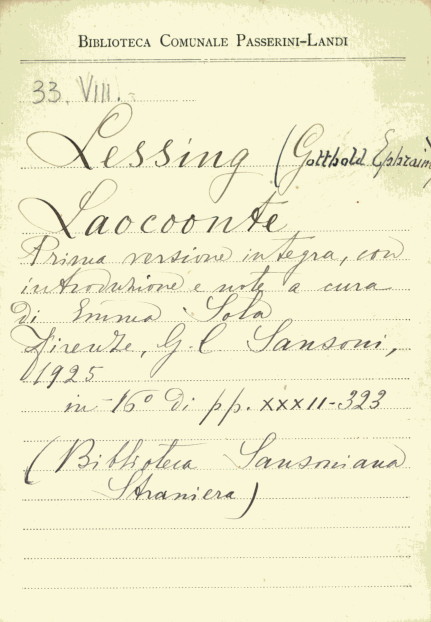 BIBLIOTECA COMUNALE PASSERINI-LANDI
33. VIII.
Lessing (Gotthold Ephraim)
Laocoonte
Prima versione integra, con
introduzione e note a cura
di Emma Sola
Firenze, G. C. Sansoni,
1925
in 16° di pp. XXXII-323
(Biblioteca Sansoniana
Straniera)